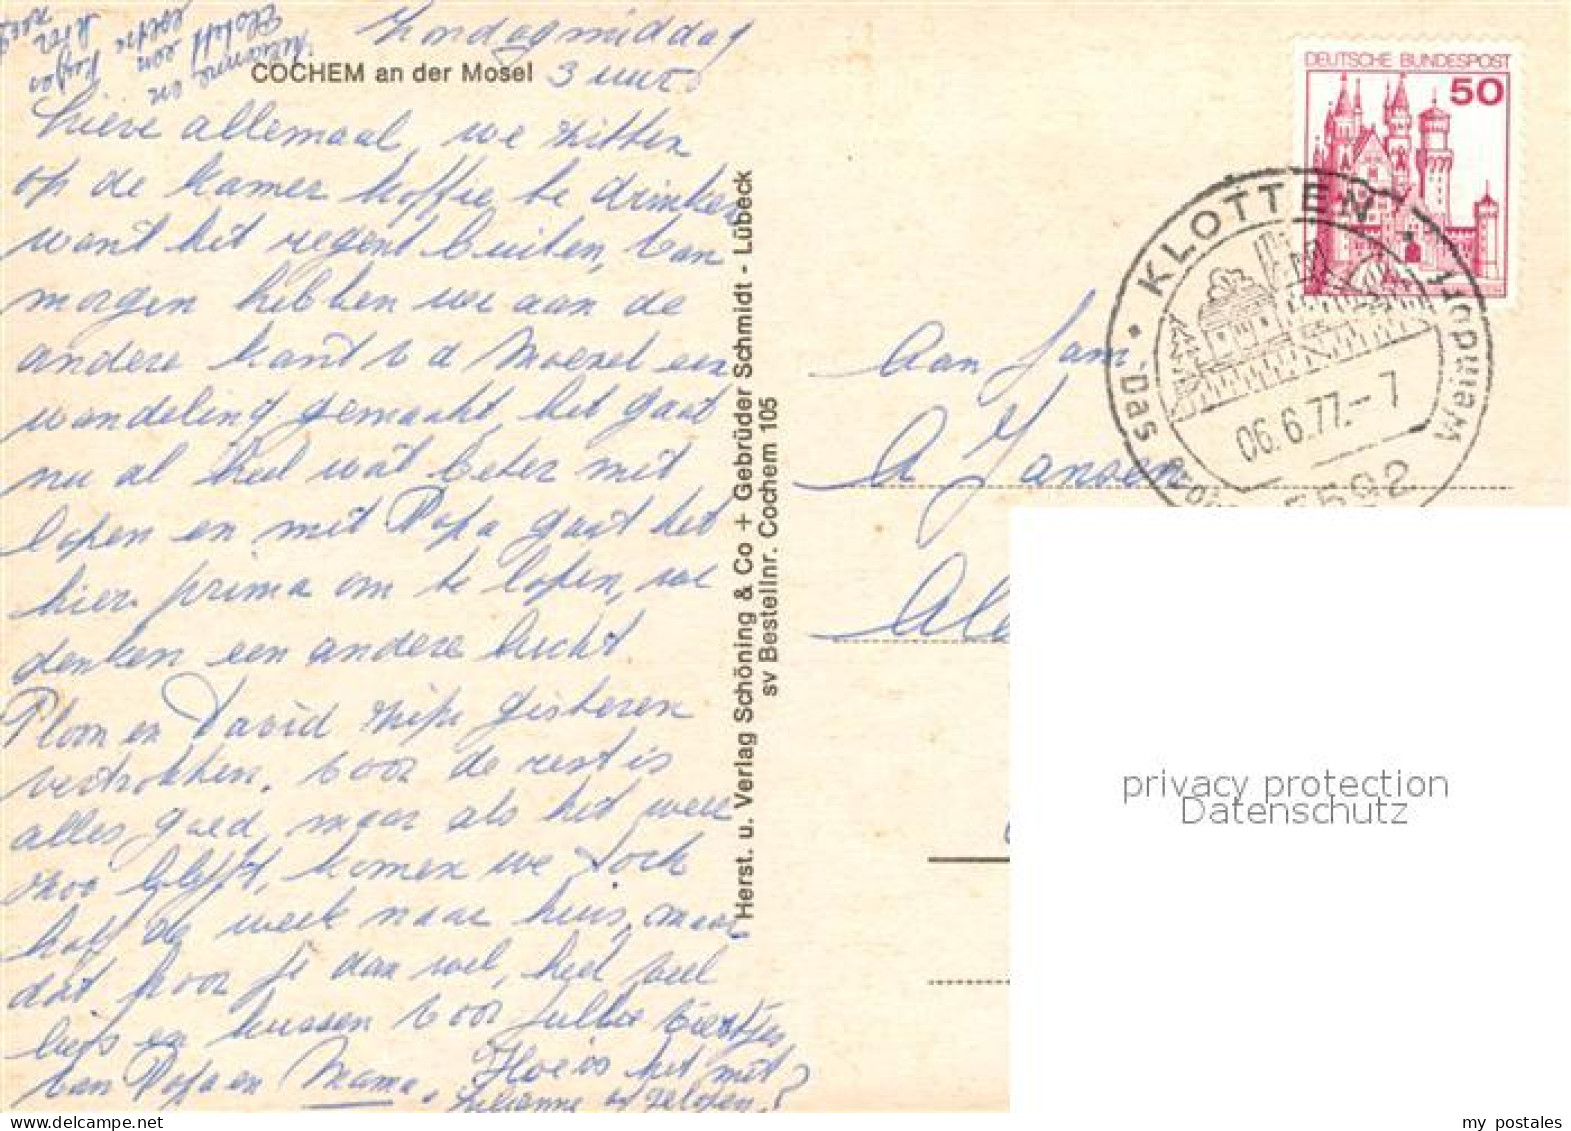 Zondagmiddag
3 uur
COCHEM an der Mosel
lieve allemaal, we zitten
op de kamer koffie te drinken
want het regent buiten, van
morgen hebben we aan de
andere kant v d Moezel een
wandeling gemaakt, het gaat
nu al heel wat beter met
lopen en met Papa gaat het
hier prima om te lopen, we
denken een andere lucht
en David zijn gisteren
vertrokken. voor de rest is
alles goed, maar als het weer
zoo blijft, komen we toch
de week naar huis, maar
dat hoor je dan wel, heel veel
liefs en kussen voor jullie
van Papa en Mama.
Hoe is het met
Herst. u. Verlag Schöning & Co + Gebrüder Schmidt - Lübeck
sv Bestellnr. Cochem 105
DEUTSCHE BUNDESPOST
50
KLOTTEN
"Das Weindorf
06.6.77.--7
5592
Aan fam
A Jansen
privacy protection
Datenschutz
my postales